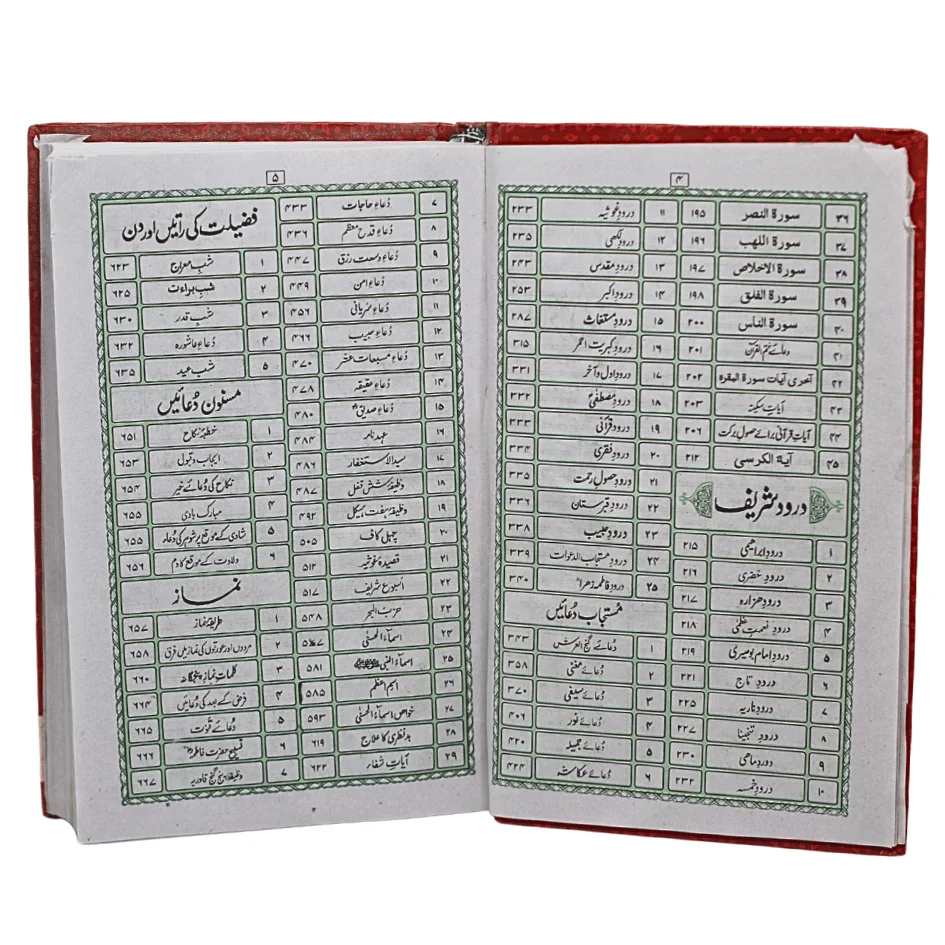 ۴
۳۶ سورة النصر ۱۹۵
۳۷ سورة اللهب ۱۹۶
۳۸ سورة الاخلاص ۱۹۷
۳۹ سورة الفلق ۱۹۸
۴۰ سورة الناس ۲۰۰
۴۱ دعائے ختم القرآن ۲۰۱
۴۲ آخری آیات سورة البقره ۲۰۲
۴۳ آیات سکینہ ۲۰۳
۴۴ آیات قرآنی برائے حصول برکت ۲۰۶
۴۵ آیة الکرسی ۲۱۲
درود شریف
۱ درودِ ابراھیمی ۲۱۵
۲ درودِ خضری ۲۱۶
۳ درودِ ھزارہ ۲۱۷
۴ درودِ نعمتِ عظمٰی ۲۱۸
۵ درودِ امام بوصیری ۲۱۹
۶ درودِ تاج ۲۲۱
۷ درودِ ناریہ ۲۲۵
۸ درودِ تنجینا ۲۲۷
۹ درودِ ماھی ۲۳۰
۱۰ درودِ خمسہ ۲۳۲
۱۱ درودِ غوثیہ ۲۳۳
۱۲ درودِ لکھی ۲۳۵
۱۳ درودِ مقدس ۲۴۳
۱۴ درودِ اکبر ۲۵۳
۱۵ درودِ مستغاث ۲۸۷
۱۶ درودِ کبریت احمر ۳۱۵
۱۷ درودِ اول و آخر ۳۳۱
۱۸ درودِ مصطفٰیؐ ۳۳۲
۱۹ درودِ قرآنی ۳۳۳
۲۰ درودِ فقری ۳۳۴
۲۱ درودِ حصولِ رحمت ۳۳۵
۲۲ درودِ قبرستان ۳۳۶
۲۳ درودِ حبیب ۳۳۸
۲۴ درودِ مستجاب الدعوات ۳۳۹
۲۵ درودِ فاطمہ زھراؓ ۳۴۰
مُستجاب دعائیں
۱ دُعائے گنج العرش ۳۴۳
۲ دُعائے مغنی ۳۵۸
۳ دُعائے سیفی ۳۷۰
۴ دُعائے نور ۴۰۶
۵ دُعائے جمیلہ ۴۲۰
۶ دُعائے عکاشہ ۴۲۴
۵
۷ دُعاءِ حاجات ۴۳۳
۸ دُعاءِ قدح معظم ۴۳۶
۹ دُعاءِ وسعت رزق ۴۴۷
۱۰ دُعاءِ امن ۴۴۹
۱۱ دُعاءِ سُریانی ۴۵۶
۱۲ دُعاءِ حبیب ۴۶۶
۱۳ دُعاءِ مسبعات عشر ۴۷۰
۱۴ دُعاءِ عقیقہ ۴۷۸
۱۵ دُعاءِ صدیقؓ ۴۸۰
۱۶ عہد نامہ ۴۸۴
۱۷ سید الاستغفار ۴۸۶
۱۸ وظیفۂ شش قفل ۴۸۷
۱۹ وظیفۂ ہفت ہیکل ۴۹۲
۲۰ چہل کاف ۵۰۵
۲۱ قصیدۂ غوثیہ ۵۱۲
۲۲ اسبوع شریف ۵۱۷
۲۳ حزب البحر ۵۴۸
۲۴ اسمآءُ الحسنٰی ۵۶۷
۲۵ اسمآءُ النبی ﷺ ۵۸۱
۲۶ اسم اعظم ۵۸۵
۲۷ خواص اسمآءُ الحسنٰی ۵۹۳
۲۸ بد نظری کا علاج ۶۱۹
۲۹ آیاتِ شفاء ۶۲۲
فضیلت کی راتیں اور دن
۱ شبِ معراج ۶۲۳
۲ شبِ براءت ۶۲۵
۳ شبِ قدر ۶۳۰
۴ دُعاءِ عاشورہ ۶۳۲
۵ شبِ عید ۶۳۵
مسنون دُعائیں
۱ خطبۂ نکاح ۶۵۱
۲ ایجاب و قبول ۶۵۳
۳ نکاح کی دُعائے خیر ۶۵۴
۴ مبارک بادی ۶۵۵
۵ شادی کے موقع پر شوہر کی دُعاء ۶۵۵
۶ ولادت کے موقع کا دم ۶۵۶
نماز
۱ طریقۂ نماز ۶۵۷
۲ مردوں اور عورتوں کی نماز میں فرق ۶۵۸
۳ کلمات نمازِ پنجگانہ ۶۶۰
۴ فرض کے بعد کی دُعائیں ۶۶۴
۵ دُعائے قنوت ۶۶۵
۶ تسبیح حضرت فاطمہؓ ۶۶۶
۷ وظیفہ پنج گنج قادریہ ۶۶۷